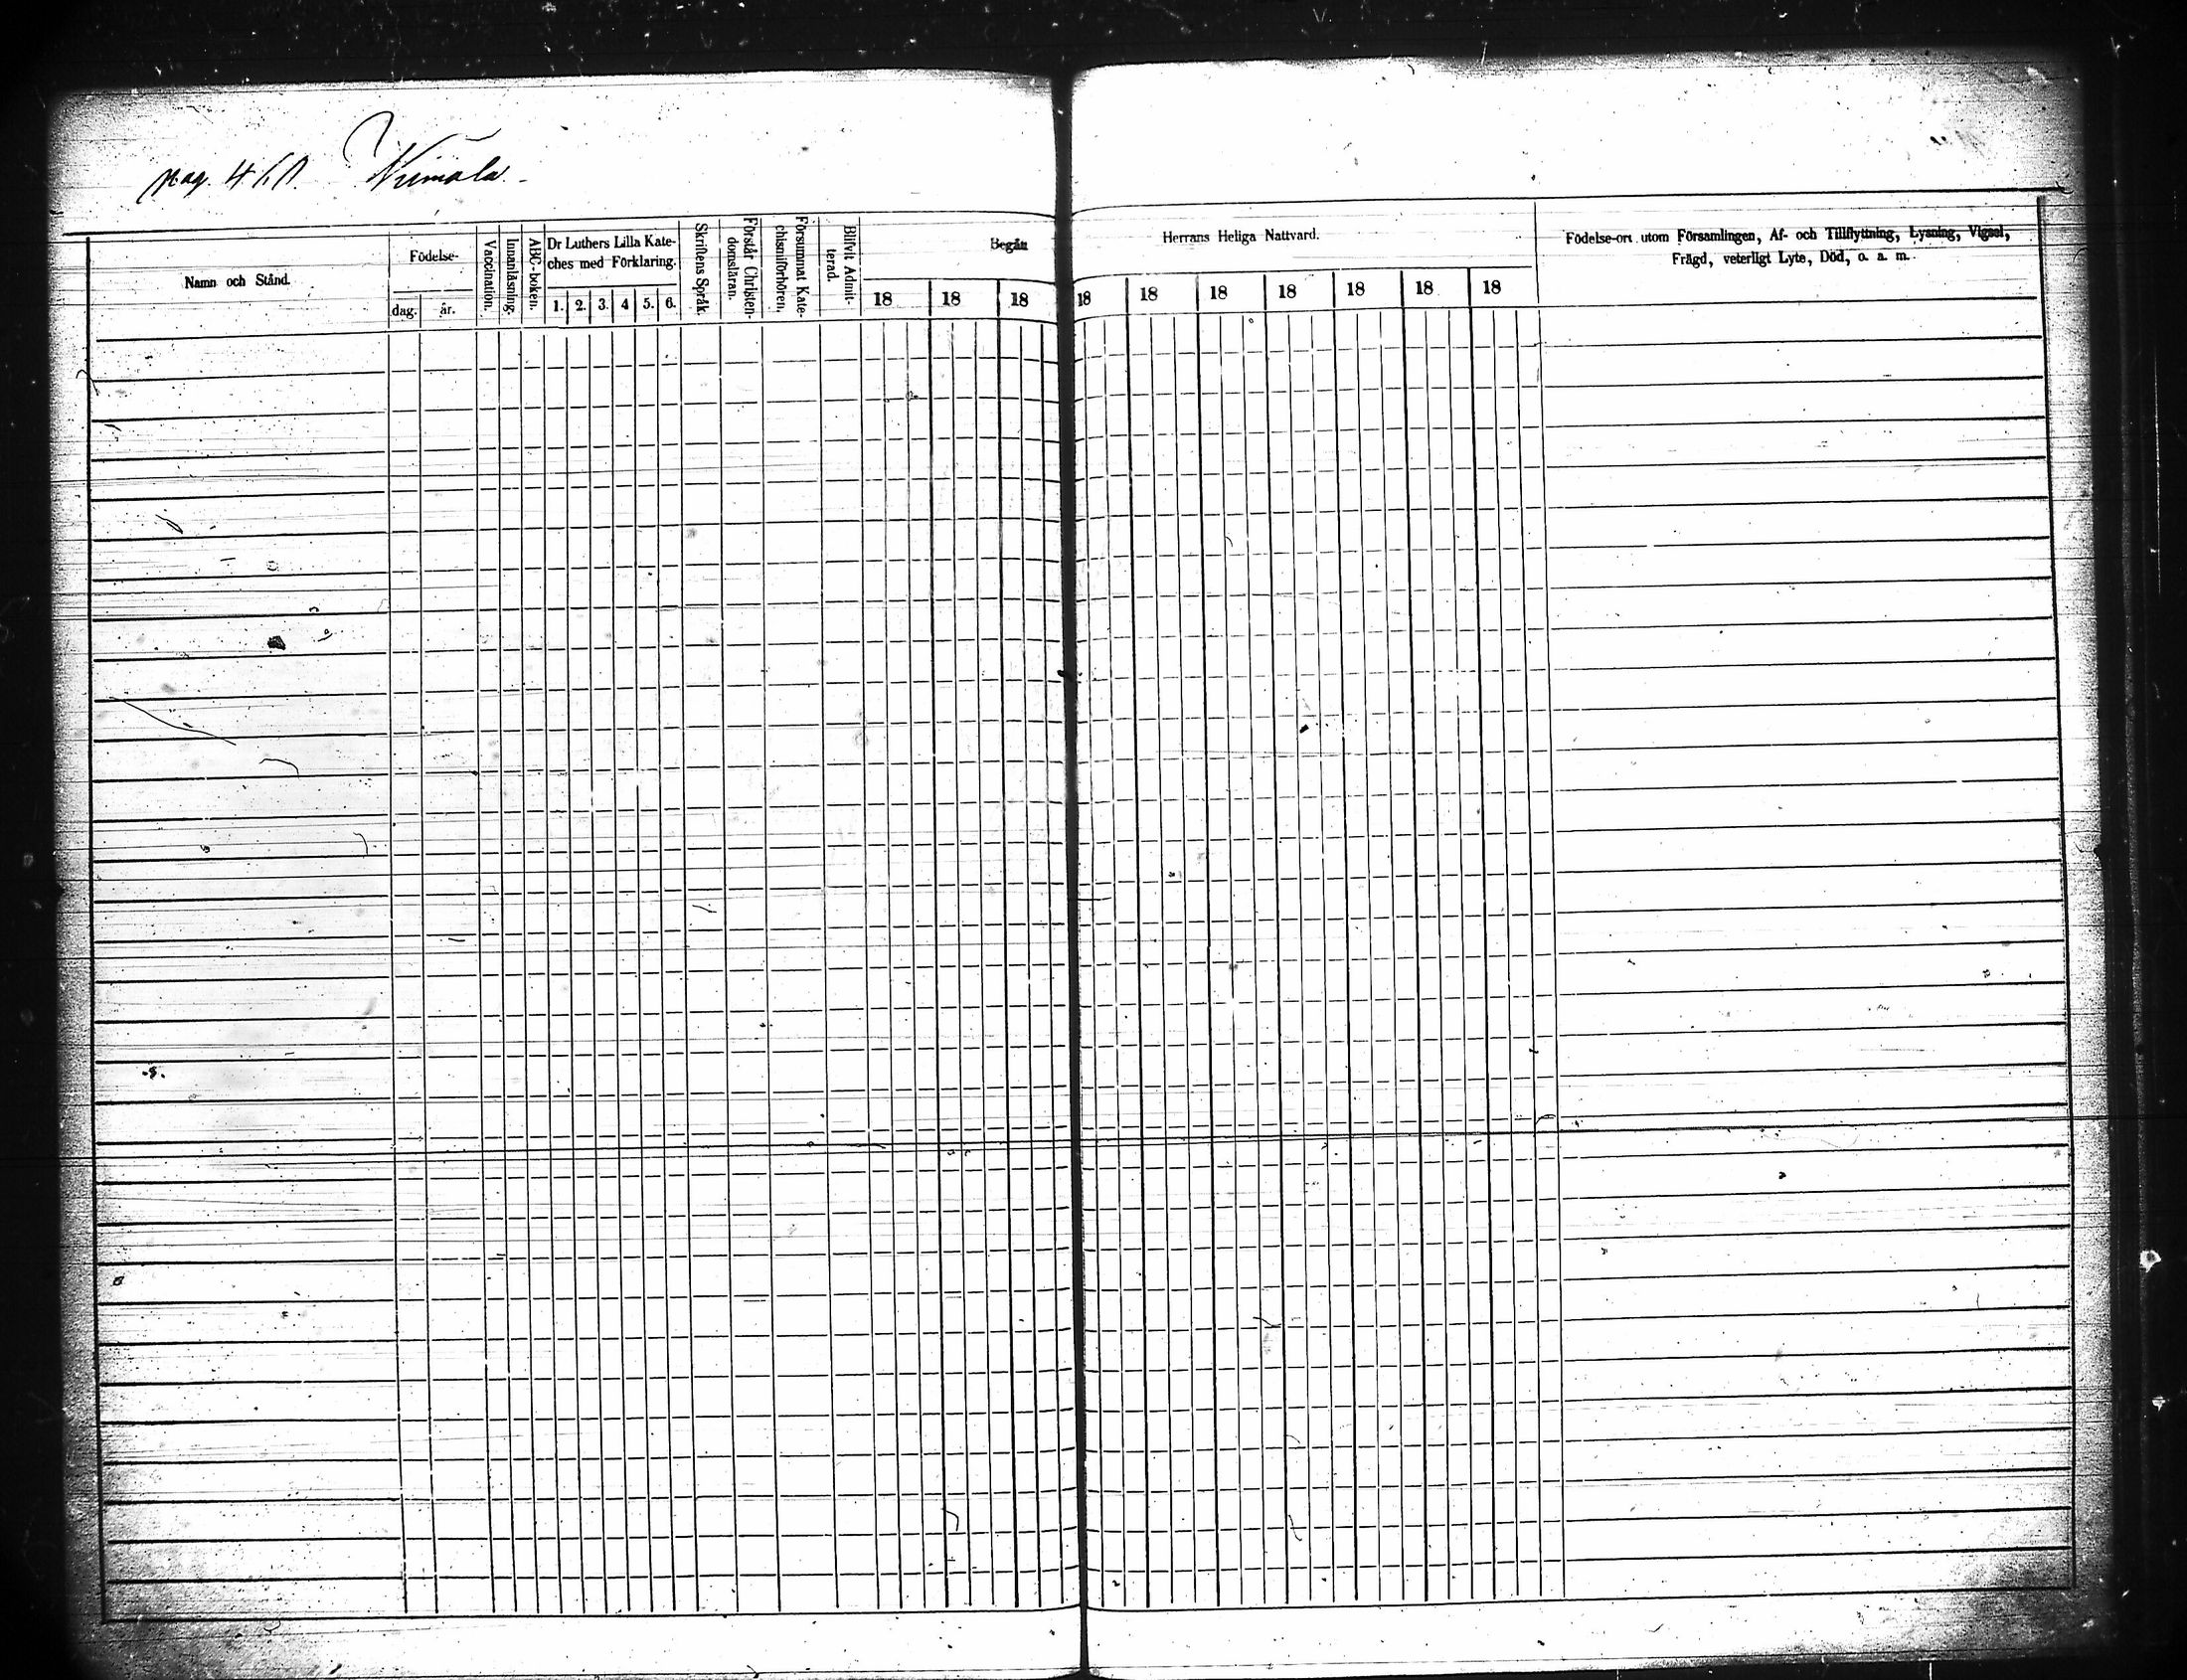 pag. 460. Niimala.
Namn och Stånd.
Födelse-
dag.
år.
Vaccination.
Innanläsning.
ABC-boken.
Dr Luthers Lilla Kate-
ches med Förklaring.
1. 2. 3. 4 5. 6.
Skriftens Språk.
Förstår Christen-
domsläran.
Försummat Kate-
chismiförhören.
Blifvit Admit-
terad.
Begått
18 18 18
Herrans Heliga Nattvard.
18 18 18 18 18 18 18
Födelse-ort utom Församlingen, Af- och Tillflyttning, Lysning, Vigsel,
Frägd, veterligt Lyte, Död, o. a. m.